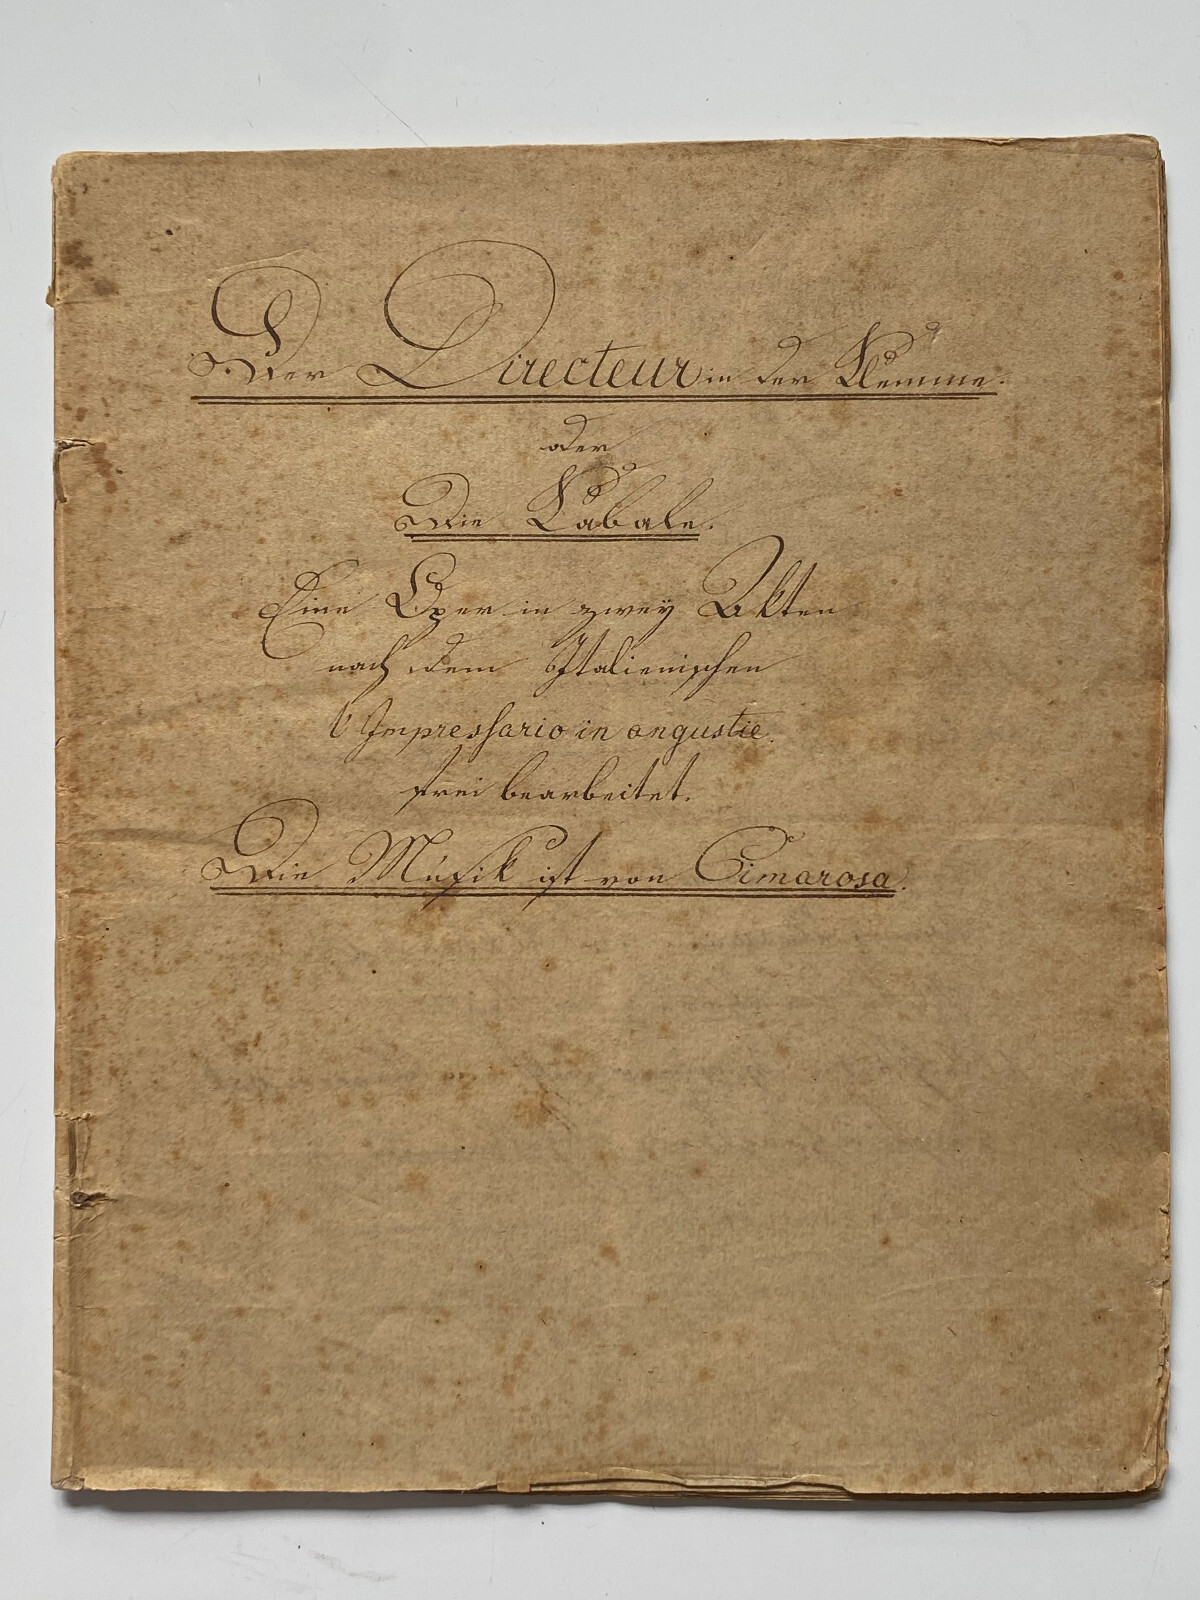 Der Directeur in der Klemme.
oder
Die Kabale.
Eine Oper in zwey Akten
nach dem Italienischen
l'Impressario in angustie.
frei bearbeitet.
Die Musik ist von Cimarosa.